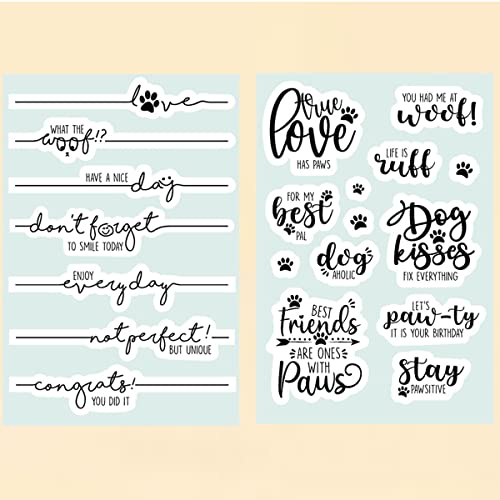 love
WHAT THE
woof!?
HAVE A NICE day
don't forget
TO SMILE TODAY
ENJOY
everyday
not perfect!
BUT UNIQUE
congrats!
YOU DID IT
true
love
HAS PAWS
YOU HAD ME AT
woof!
LIFE IS
ruff
FOR MY
best
PAL
dog
AHOLIC
Dog
kisses
FIX EVERYTHING
BEST
Friends
ARE ONES
WITH
Paws
LET'S
paw-ty
IT IS YOUR BIRTHDAY
stay
PAWSITIVE